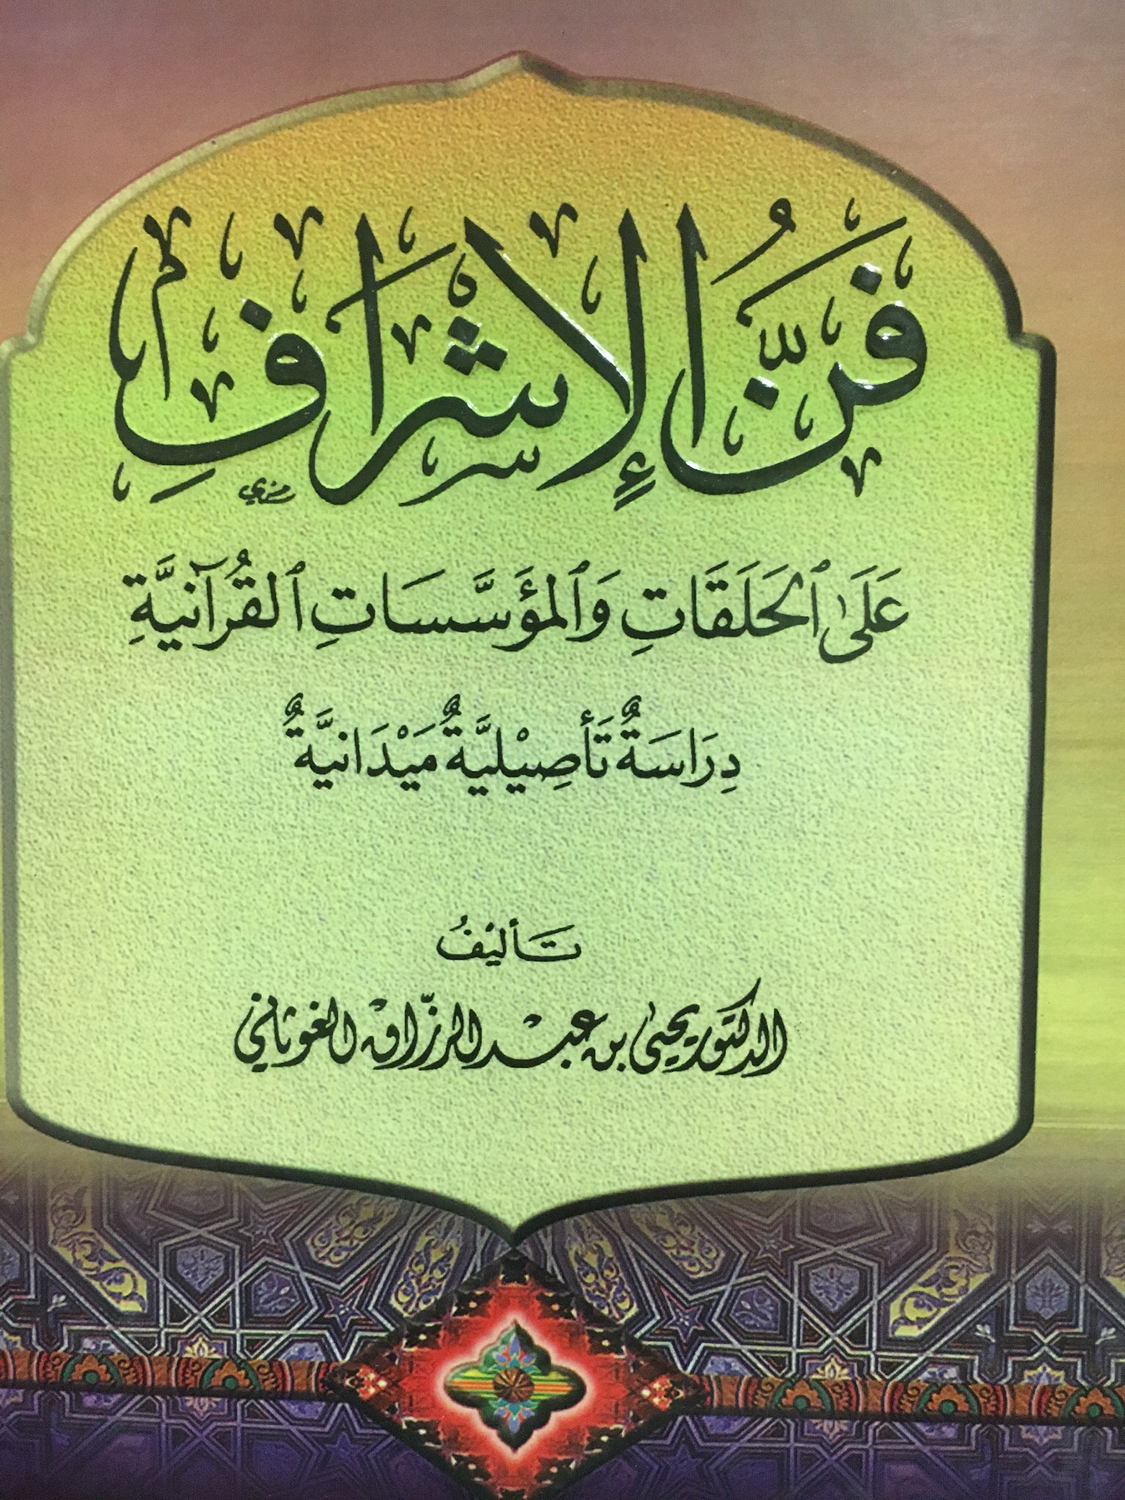 فَنُّ الإِشْرَافِ
عَلَى ٱلْحَلَقَاتِ وَٱلْمُؤَسَّسَاتِ ٱلْقُرْآنِيَّةِ
دِرَاسَةٌ تَأْصِيْلِيَّةٌ مَيْدَانِيَّةٌ
تَأْلِيْفُ
الدكتور يحيى بن عبد الرزّاق الغوثاني